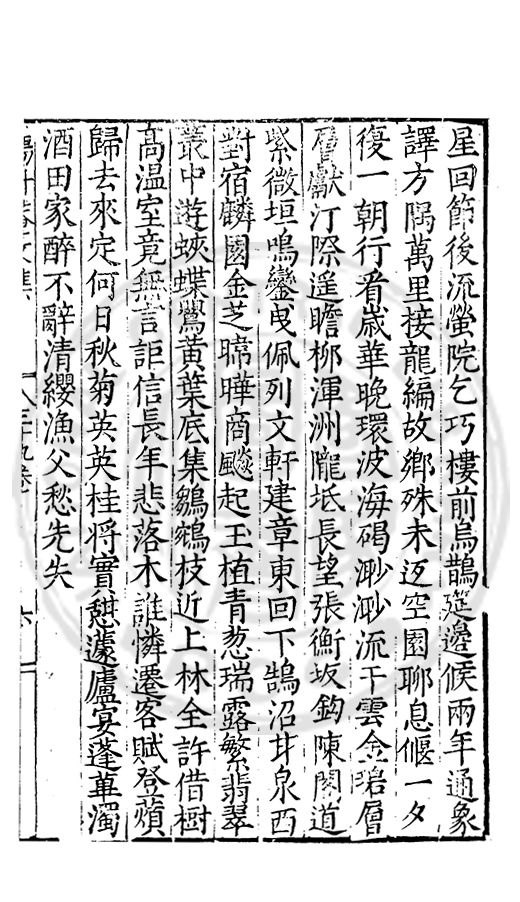 星回節後流螢院乞巧樓前烏鵲筵邊候兩年通象
譯方隅萬里接龍編故鄉殊未迓空園聊息偃一夕
復一朝行看歲華晚環波海碣渺渺流干雲金碧層
層巘汀際遥瞻栁渾洲隴坻長望張衡坂鈎陳閣道
紫微垣鳴鑾曳佩列文軒建章東回下鵠沼甘泉西
對宿麟園金芝暐曄商飈起玉植青葱瑞露繁翡翠
叢中遊蛺蝶鸎黄葉底集鵷鶵枝近上林全許借樹
髙温室竟無言詎信長年悲落木誰憐遷客賦登蘋
歸去來定何日秋菊英英桂将實憇蘧廬宴蓬蓽濁
酒田家醉不辭清纓漁父愁先失